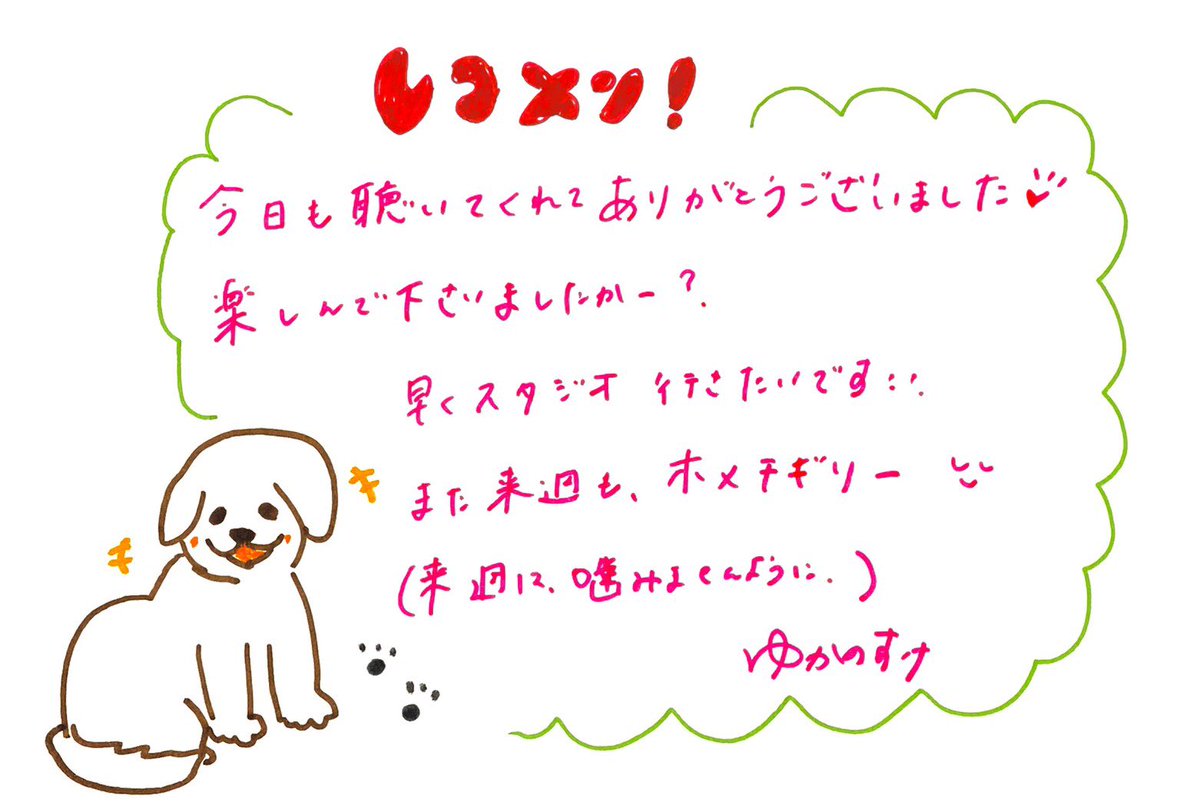 レコメン!
今日も聴いてくれてありがとうございました
楽しんで下さいましたかー?
早くスタジオ行きたいです::.
また来週も、ホメチギリー
(来週は、噛みませんように.)
ゆかのすけ